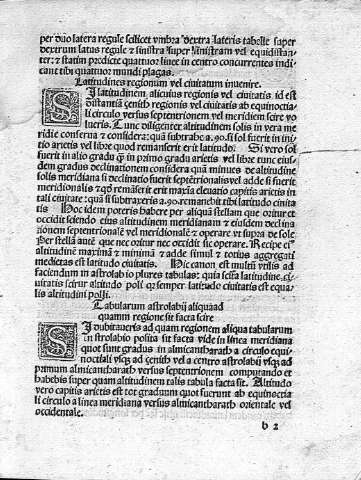 per duo latera regule scilicet vmbra dextra lateris tabelle super
dextrum latus regule z sinistra super sinistram vel equidistan-
ter: z statim predicte quattuor linee in centro concurrentes indi
cant tibi quattuor mundi plagas.
Latitudines regionum vel ciuitatum inuenire.
SI latitudinem alicuius regionis vel ciuitatis id est
distantiã zenith regionis vel ciuitatis ab equinoctia
li circulo versus septentrionem vel meridiem scire vo
lueris. Tunc diligenter altitudinem solis in vera me
ridie conserua z considera: quã subtrahe a .90. si sol fuerit in ini
tio arietis vel libre quod remanserit erit latitudo. Si vero sol
fuerit in alio gradu q̃ in primo gradu arietis vel libre tunc eius-
dem gradus declinationem considera quã minues de altitudine
solis meridiana si declinatio fuerit septẽtrionalis vel adde si fuerit
meridionalis z qd remãserit erit maxia eleuatio capitis arietis in
tali ciuitate: quã si subtraxeris a .90. remanebit tibi latitudo ciuita
tis Hoc idem poteris habere per aliquã stellam que oritur et
occidit sciendo eius altitudinem meridianam z eiusdem declina
tionem septentrionalem vel meridionalẽ z operare vt supra de sole
Per stellã autẽ que nec oritur nec occidit sic operare. Recipe ei
altitudinẽ maximã z minimã z adde simul z totius aggregati
medietas est latitudo ciuitatis. Hic canon est multũ vtilis ad
faciendum in astrolabio plures tabulas: quia scita latitudine ci
uitatis scitur altitudo poli qz semper latitudo ciuitatis est equa-
lis altitudini poli.
Tabularum astrolabij aliqua ad
quamm regione sit facta scire
SI dubitaueris ad quam regionem aliqua tabularum
in astrolabio posita sit facta vide in linea meridiana
quot sunt gradus in almicantharath a circulo equi-
noctiali vsqz ad zenith vel a centro astrolabij vsqz ad
primum almicantharath versus septentrionem computando et
habebis super quam altitudinem talis tabula facta sit. Altitudo
vero capitis arietis est tot graduum quot fuerint ab equinoctia
li circulo a linea meridiana versus almicantharath orientale vel
occidentale.
b 2